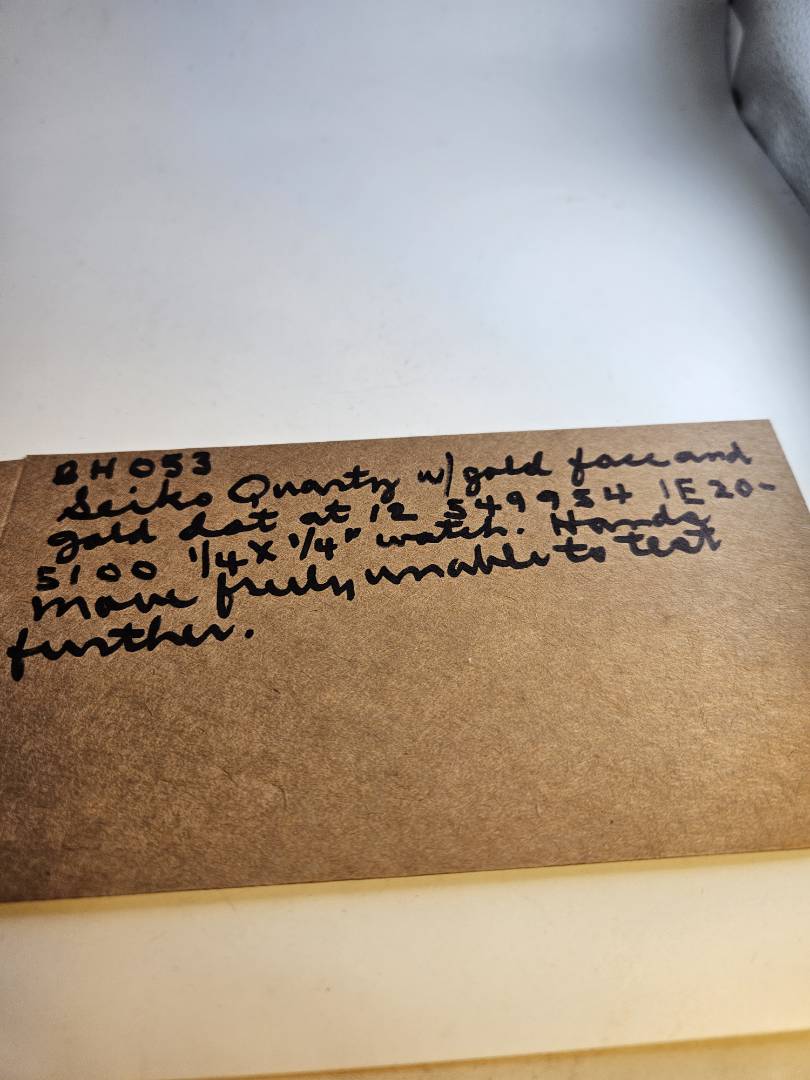 BH053
Seiko Quartz w/ gold face and
gold dot at 12 549954 1E20-
5100 1/4 x 1/4" watch. Hands
move freely, unable to test
further.